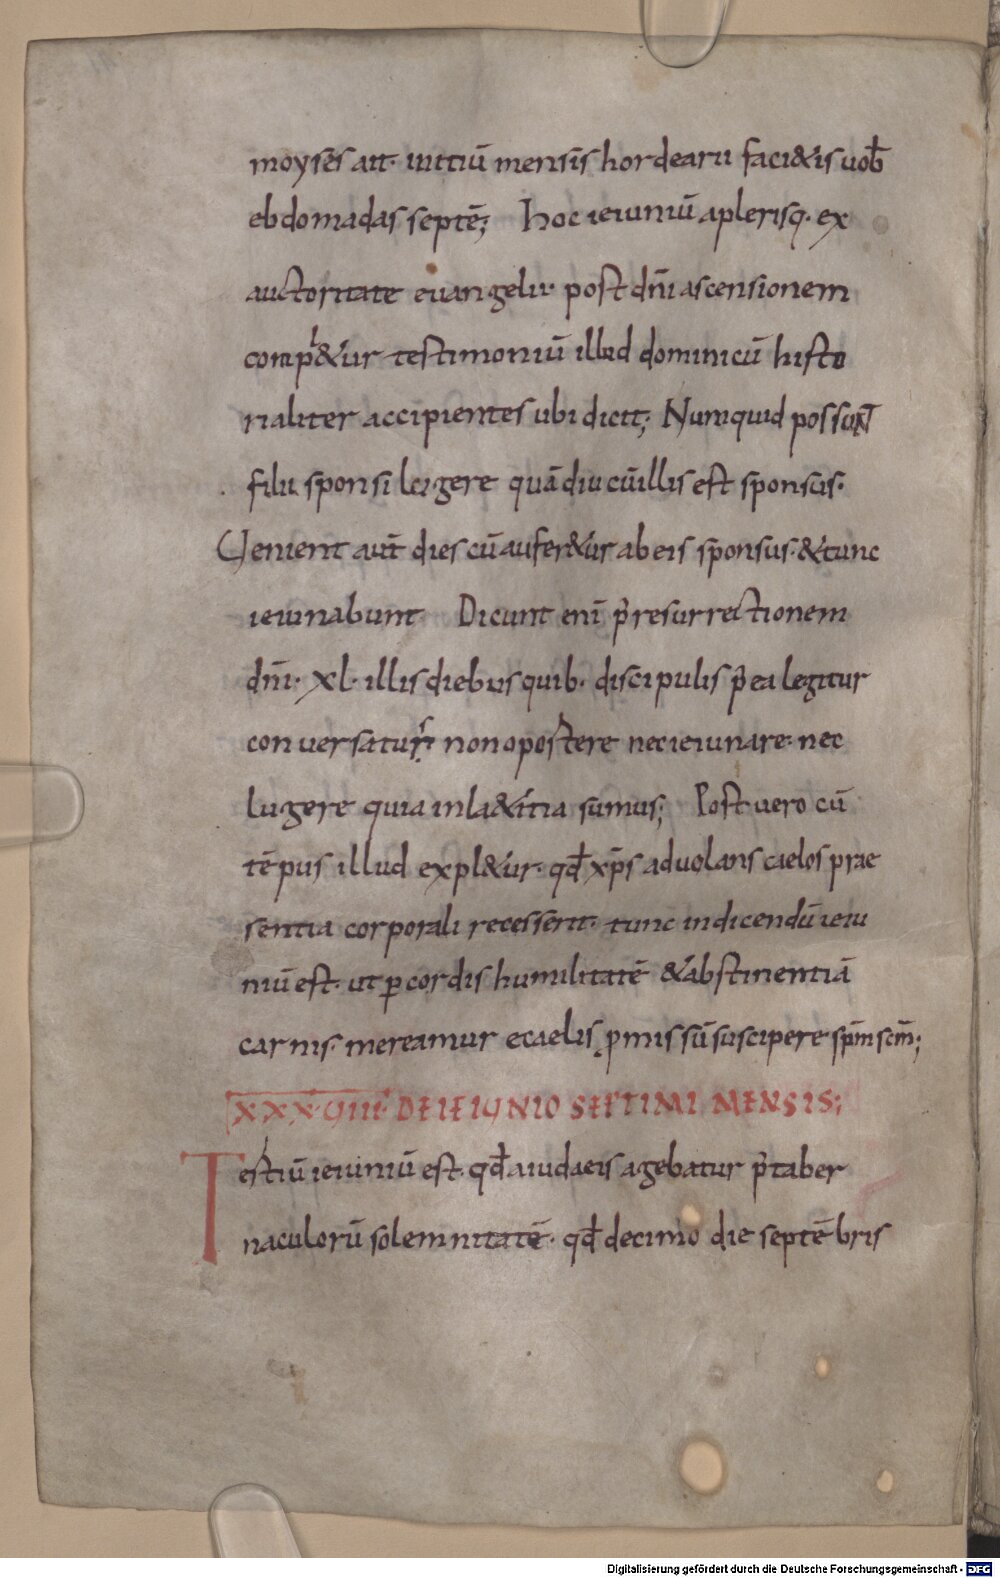 moyses ait· initiū mensis hordearii faci&is uob̅
ebdomadas septē; Hoc ieiuniū a plerisq· ex
auctoritate euangelii· post dn̄i ascensionem
compl&ur testimoniū illud dominicū histo
rialiter accipientes ubi dicit; Numquid possunt
filii sponsi lugere quādiu cū illis est sponsus·
Uenient aut̄ dies cū aufer&ur ab eis sponsus· & tunc
ieiunabunt Dicunt eni p̄ resurrectionem
dn̄i· xl· illis diebus quib· discipulis p̄ ea legitur
conuersatus; non oportere nec ieiunare· nec
lugere quia in la&itia sumus; Post uero cū
tēpus illud expl&ur· qd̄ xp̄s aduolans caelos prae
sentia corporali recesserit· tunc indicendū ieiu
niū est· ut ꝑ cordis humilitatē & abstinentiā
carnis· mereamur e caelis ꝓmissū suscipere sp̄m sc̄m;
XXXVIIII DE IEIUNIO SEPTIMI MENSIS;
Tertiū ieiuniū est· qd̄ a iudaeis agebatur p̄ taber
naculorū solemnitatē· qd̄ decimo die septēbris
Digitalisierung gefördert durch die Deutsche Forschungsgemeinschaft - DFG